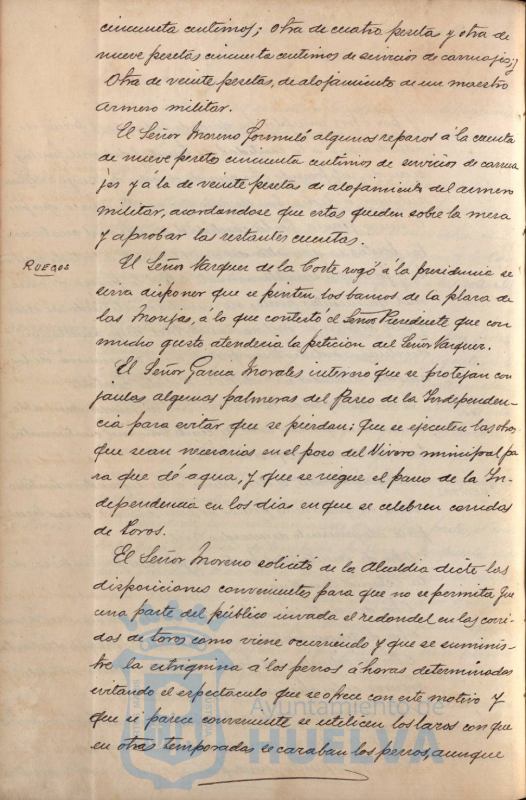 cincuenta centimos; otra de cuatro pesetas y otra de
nueve pesetas cincuenta centimos de servicios de carruajes; y
Otra de veinte pesetas, de alojamiento de un maestro
armero militar.
El Señor Moreno formuló algunos reparos á la cuenta
de nueve pesetas cincuenta centimos de servicios de carrua
jes y á la de veinte pesetas de alojamiento del armero
militar, acordandose que estas queden sobre la mesa
y aprobar las restantes cuentas.
RUEGOS
El Señor Vazquez de la Corte rogó á la presidencia se
sirva disponer que se pinten los bancos de la plaza de
las Monjas, á lo que contestó el Señor Presidente que con
mucho gusto atenderia la peticion del Señor Vazquez.
El Señor Garcia Morales interesó que se protejan con
jaulas algunas palmeras del Paseo de la Independen-
cia para evitar que se pierdan; que se ejecuten las obras
que sean necesarias en el pozo del Vivero municipal pa
ra que dé agua, y que se riegue el paseo de la In-
dependencia en los dias en que se celebren corridas
de toros.
El Señor Moreno solicitó de la Alcaldia dicte las
disposiciones convenientes para que no se permita que
una parte del público invada el redondel en las corri-
das de toros como viene ocurriendo y que se suminis-
tre la estrignina á los perros á horas determinadas
evitando el espectaculo que se ofrece con este motivo y
que si parece conveniente se utilicen los lazos con que
en otras temporadas se cazaban los perros, aunque
Ayuntamiento de
HUELVA